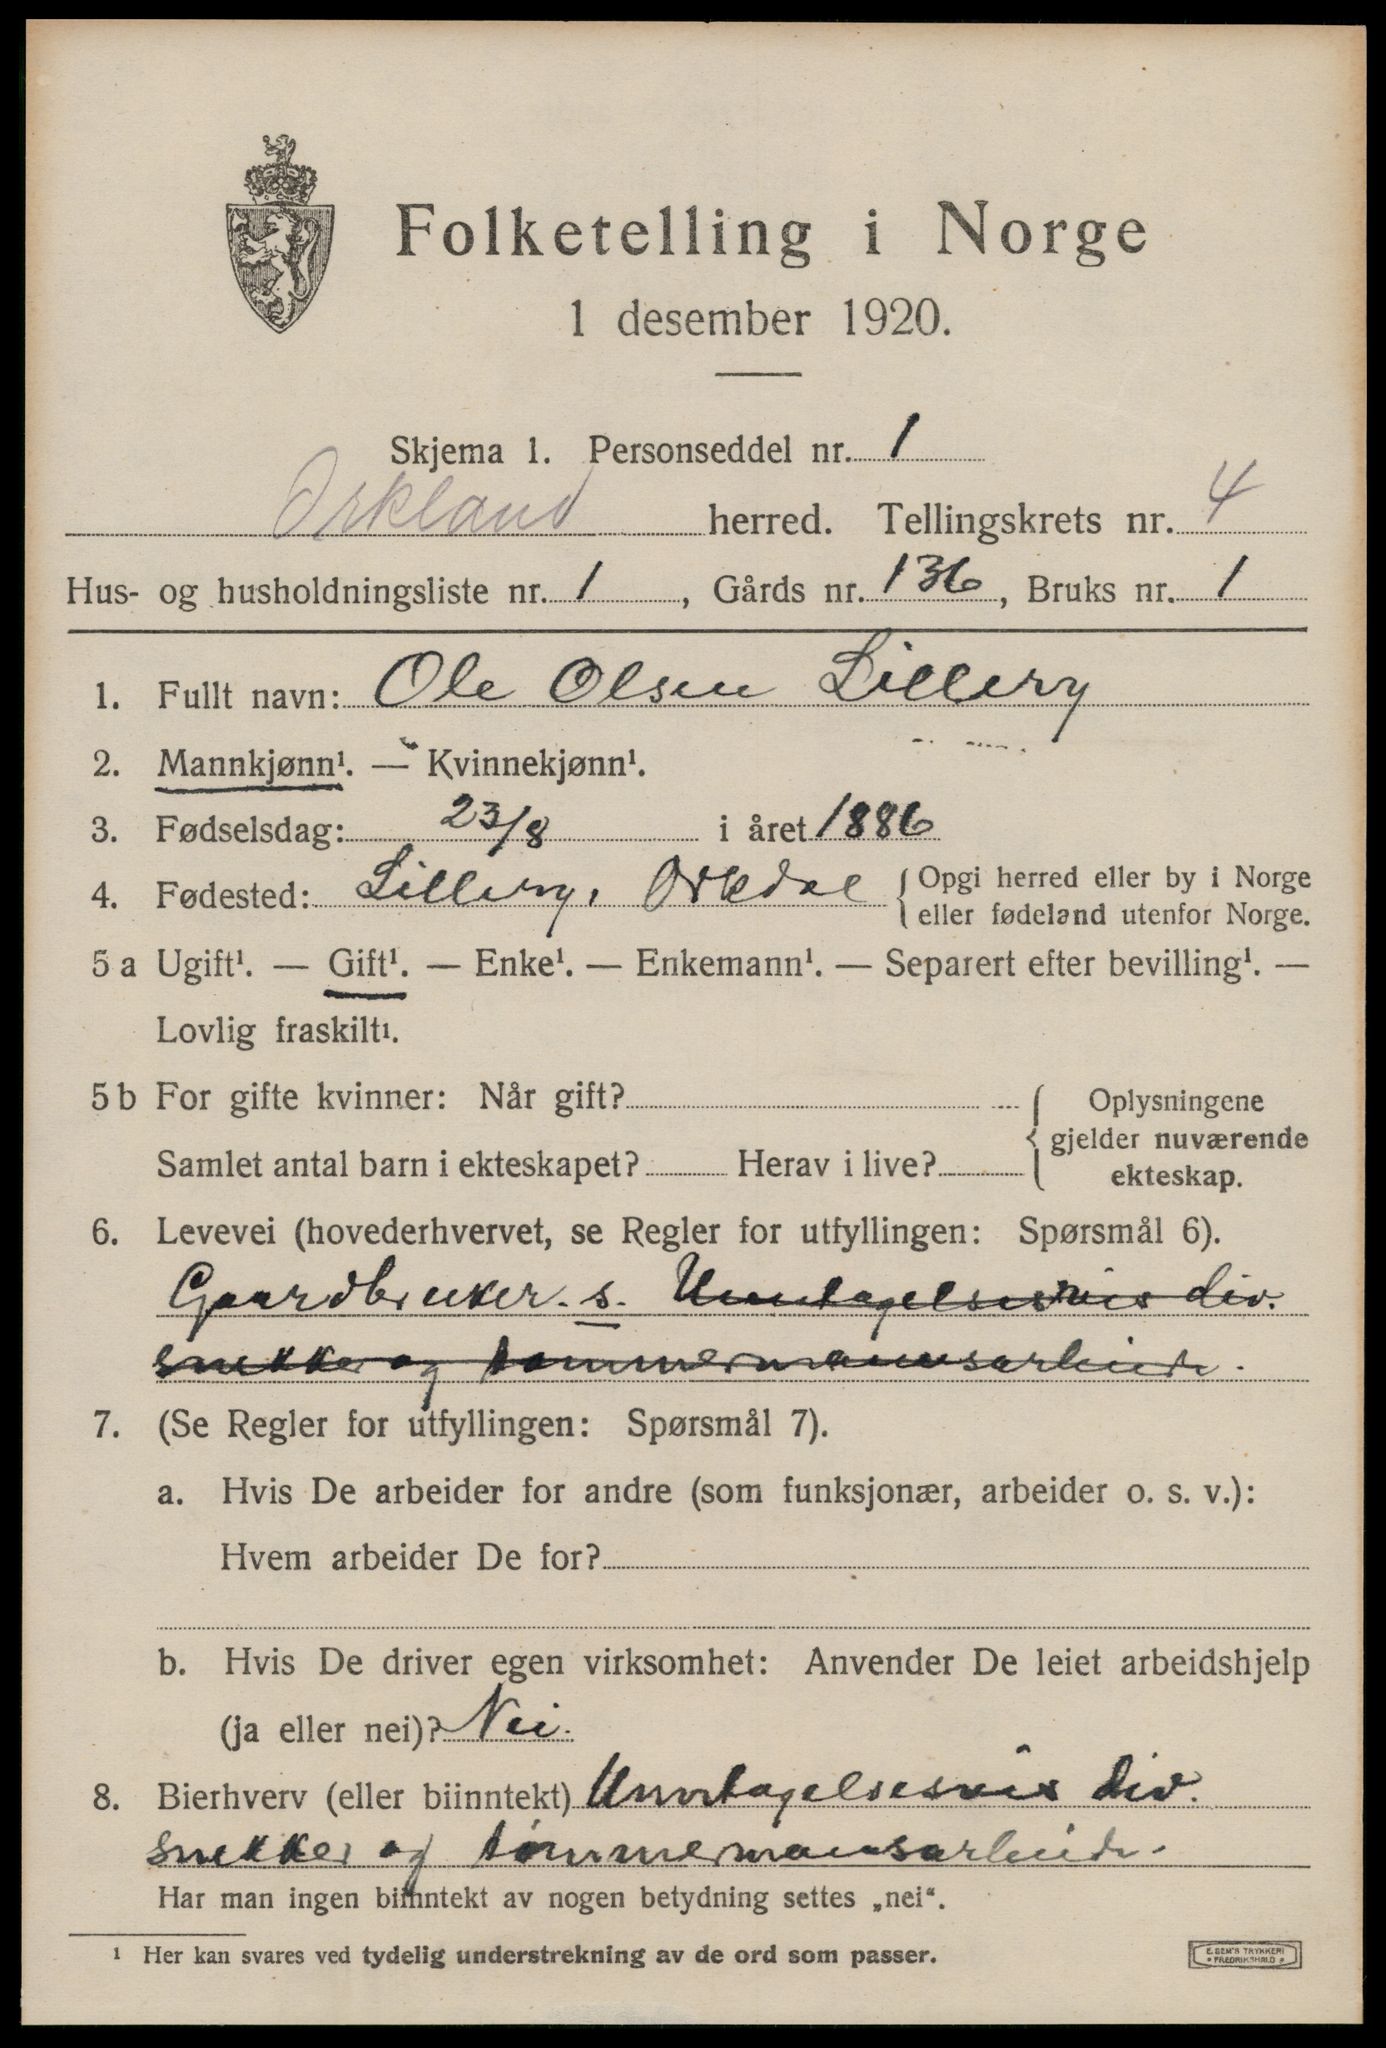 Folketelling i Norge
1 desember 1920.
Skjema 1. Personseddel nr. 1
Orkland herred. Tellingskrets nr. 4
Hus- og husholdningsliste nr. 1, Gårds nr. 136, Bruks nr. 1
1. Fullt navn: Ole Olsen Lillery
2. Mannkjønn¹. — Kvinnekjønn¹.
3. Fødselsdag: 23/8 i året 1886
4. Fødested: Lillery, Orkdal { Opgi herred eller by i Norge
eller fødeland utenfor Norge.
5 a Ugift¹. — Gift¹. — Enke¹. — Enkemann¹. — Separert efter bevilling¹. —
Lovlig fraskilt¹.
5 b For gifte kvinner: Når gift? { Oplysningene
gjelder nuværende
Samlet antal barn i ekteskapet? Herav i live? ekteskap.
6. Levevei (hovederhvervet, se Regler for utfyllingen: Spørsmål 6).
Gaardbruker. s. Unntagelsesvis div.
snekker og tømmermannsarbeide.
7. (Se Regler for utfyllingen: Spørsmål 7).
a. Hvis De arbeider for andre (som funksjonær, arbeider o. s. v.):
Hvem arbeider De for?
b. Hvis De driver egen virksomhet: Anvender De leiet arbeidshjelp
(ja eller nei)? Nei.
8. Bierhverv (eller biinntekt) Unntagelsesvis div.
snekker og tømmermansarbeide.
Har man ingen biinntekt av nogen betydning settes „nei“.
¹ Her kan svares ved tydelig understrekning av de ord som passer.
E. SEM'S TRYKKERI
* FREDRIKSHALD *